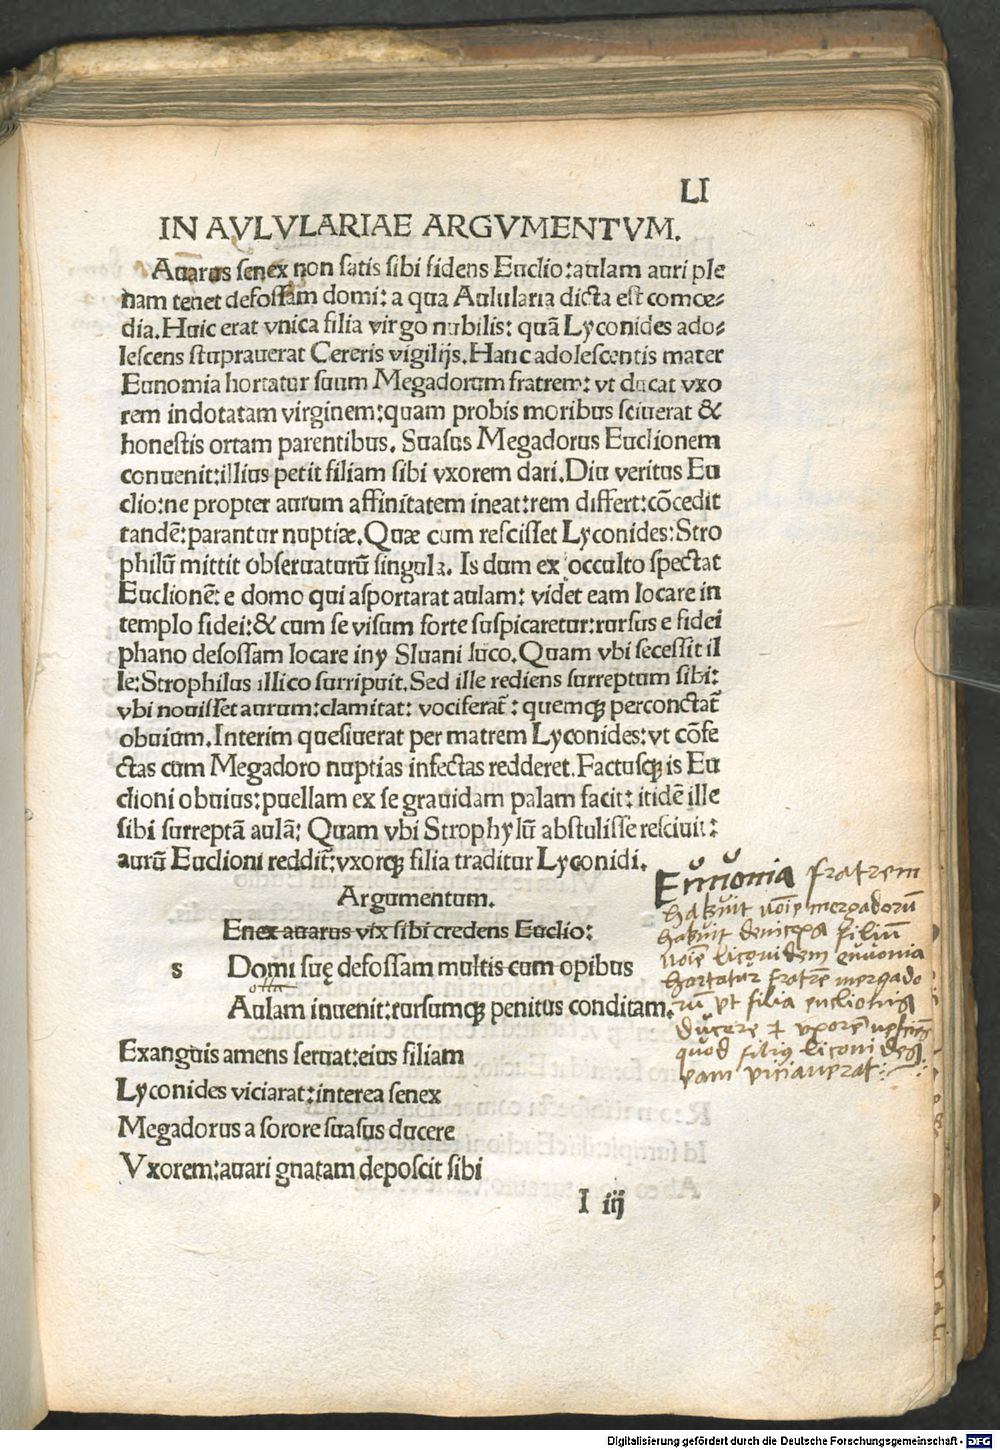 LI
IN AVLVLARIAE ARGVMENTVM.
Auarus senex non satis sibi fidens Euclio: aulam auri ple
nam tenet defossam domi: a qua Aulularia dicta est comœ⸗
dia. Huic erat vnica filia virgo nubilis: quā Lyconides ado⸗
lescens stuprauerat Cereris vigilijs. Hanc adolescentis mater
Eunomia hortatur suum Megadorum fratrem: vt ducat vxo
rem indotatam virginem: quam probis moribus sciuerat &
honestis ortam parentibus. Suasus Megadorus Euclionem
conuenit: illius petit filiam sibi vxorem dari. Diu veritus Eu
clio: ne propter aurum affinitatem ineat: rem differt: cōcedit
tandē: parantur nuptiæ. Quæ cum rescisset Lyconides: Stro
philū mittit obseruaturū singula. Is dum ex occulto spectat
Euclionē: e domo qui asportarat aulam: videt eam locare in
templo fidei: & cum se visum forte suspicaretur: rursus e fidei
phano defossam locare iny Sluani luco. Quam vbi secessit il
le: Strophilus illico surripuit. Sed ille rediens surreptum sibi:
vbi nouisset aurum: clamitat: vociferat̄: quemqꝫ perconctat̄
obuium. Interim quesiuerat per matrem Lyconides: vt cōfe
ctas cum Megadoro nuptias infectas redderet. Factusqꝫ is Eu
clioni obuius: puellam ex se grauidam palam facit: itidē ille
sibi surreptā aulā: Quam vbi Strophylū abstulisse resciuit:
aurū Euclioni reddit: vxorqꝫ filia traditur Lyconidi.
Argumentum.
Enex auarus vix sibi credens Euclio:
s Domi suę defossam multis cum opibus
olla
Aulam inuenit: rursumqꝫ penitus conditam.
Exanguis amens seruat: eius filiam
Lyconides viciarat: interea senex
Megadorus a sorore suasus ducere
Vxorem: auari gnatam deposcit sibi
I iij
Eunonia fratrem
habuit noīe mergadorū
habuit filiū
noīe liconidem eunonia
hortatur fratrē mergado
rū ut filia euclionis
ducere vxorē
quod filius liconides
eam viciauerat
Digitalisierung gefördert durch die Deutsche Forschungsgemeinschaft - DFG